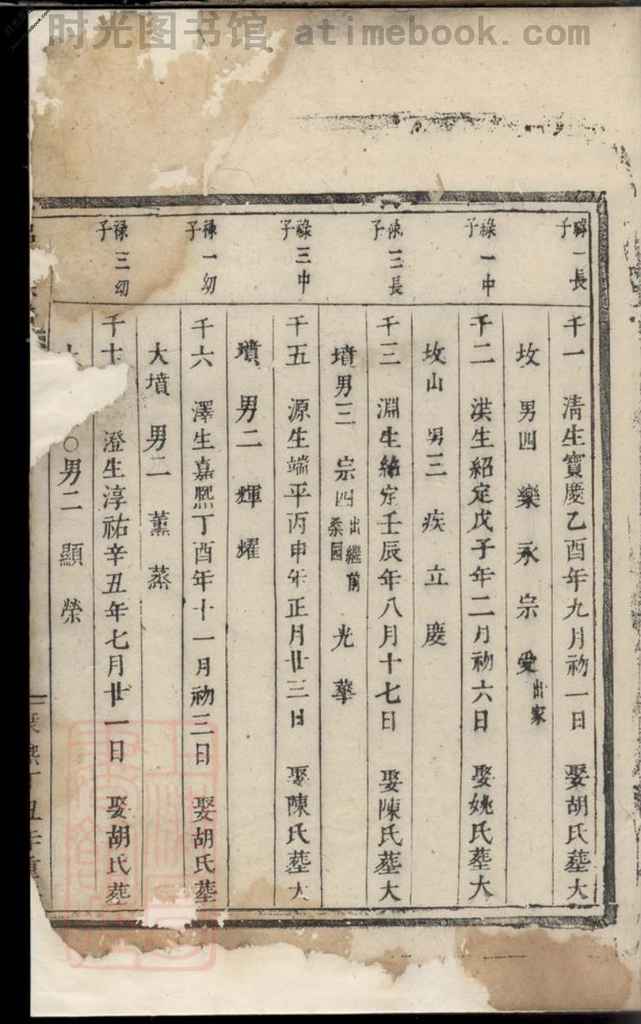 时光图书馆 atimebook.com
祿一長子
千一 淸生寶慶乙酉年九月初一日 娶胡氏葬大
坟 男四 樂 永 宗 愛出家
祿一中子
千二 洪生紹定戊子年二月初六日 娶姚氏葬大
坟山 男三 疾 立 慶
祿二長子
千三 淵生紹定壬辰年八月十七日 娶陳氏葬大
墳男三 宗四出繼前桑園 光 華
祿三中子
千五 源生端平丙申年正月廿三日 娶陳氏葬大
墳 男二 輝 燿
祿一幼子
千六 澤生嘉熙丁酉年十一月初三日 娶胡氏葬
大墳 男二 薰 蒸
祿三幼子
千十 澄生淳祐辛丑年七月廿一日 娶胡氏葬
〇男二 顯 榮
丁丑年重